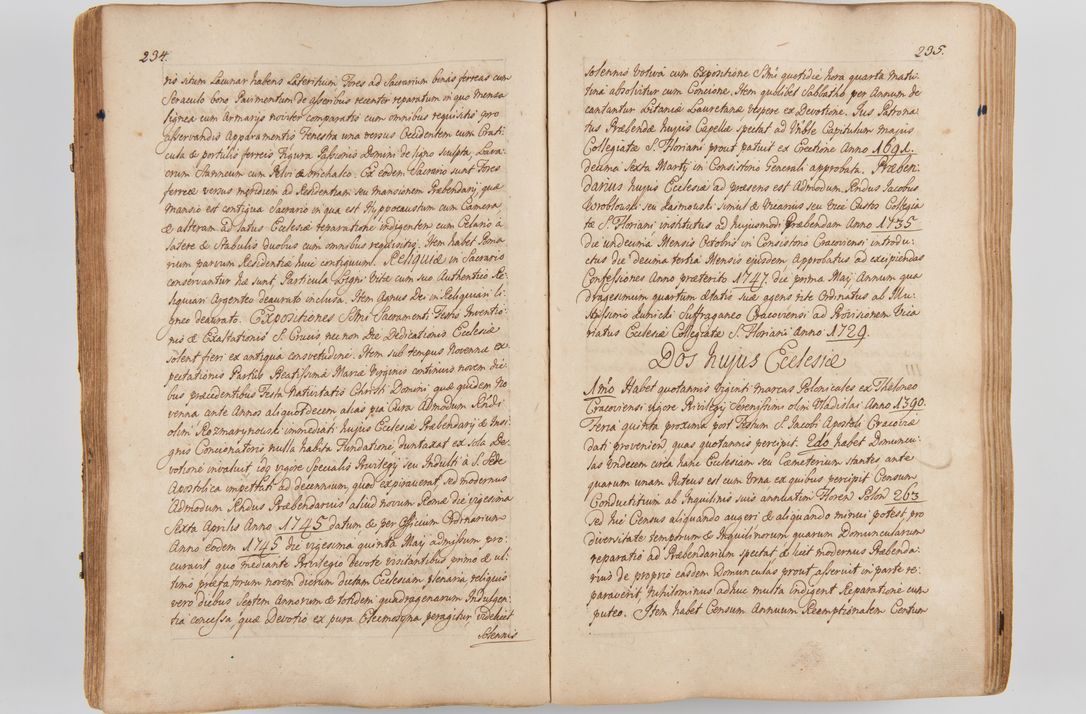 234.
ris situm Lacunar habens Lateritium Fores ad Sacrarium binas ferreas cum
Seraculo bono Pavimentum de asseribus recenter reparatum in quo Mensa
lignea cum Armarijs noviter comparatis cum omnibus requisitis pro
asservandis Apparamentis Fenestra una versus Occidentem cum Crati
cula & portulis ferreis Figura Passionis Domini de ligno sculpta, Lava-
crum Stanneum cum Pelvi & brichalco. Ex eodem Sacrario sunt Fores
ferreæ versus meridiem ad Residentiam seu mansionem Præbendarij quæ
Mansio est contigua Sacrario in qua est Hyppocaustum cum Camera
& alteram ad latus Ecclesiæ reparatione indigentem cum Celario à
latere & Stabulis duobus cum omnibus requisitis. Item habet Poma
rium parvum Residentiæ huic contiguum. Reliquiæ in Sacrario
conservantur hæ sunt, Particula Ligni Vitæ cum suo Authentico Re-
liquiari Argenteo deaurato inclusa. Item Agnus Dei in Reliquiari li-
gneo deaurato. Expositiones Ssmi Sacramenti Festis Inventio-
nis & Exaltationis S. Crucis, nec non Die Dedicationis Ecclesiæ
solent fieri ex antiqua consvetudine. Item sub tempus Novennæ ex
pectationis Partus Beatissimæ Mariæ Virginis continuis novem die-
bus præcedentibus Festa Nativitatis Christi Domini quæ quidem No
venna ante Annos aliquot decem alias pia Cura Admodum Rndi
olim Rozmarynowski immediati hujus Ecclesiæ Præbendarij & Insi-
gnis Concionatoris nulla habita Fundatione duntaxat ex sola De-
votione invaluit idq vigore Specialis Privilegij seu Indulti à S. Sede
Apostolica impetrat ad decennium, quod expiraverat sed modernus
Admodum Rndus Præbendarius aliud novum Romæ die vigesima
Sexta Aprilis Anno 1745 datum & per Officium Ordinarium
Anno eodem 1745 die vigesima quinta Maij admissum pro-
curavit quo mediante Privilegio devote visitantibus primo & ul-
timo præfatorum novem dierum dictam Ecclesiam plenaria reliquis
vero diebus Septem Annorum & totidem quadragenarum Indulgen-
tia concessa quæ Devotio ex pura Eleemosyna peragitur videlicet
solennis
235.
solennis Votiva cum Expositione Ssmi quotidie hora quarta matu
tina absolvitur cum Concione. Item quolibet Sabbatho per Annum de
cantantur Litaniæ Lauretanæ vespere ex Devotione. Jus Patrona
tus Præbendæ hujus Capellæ spectat ad Vnble Capitulum majus
Collegiatæ S. Floriani prout patuit ex Erectione Anno 1691.
decima Sexta Martij in Consistorio Generali approbata. Præben
darius hujus Ecclesiæ ad præsens est Admodum Rndus Jacobus
Wroblowski seu Rasmowski simul & Vicarius seu Vice Custos Collegia
tæ S. Floriani institutus ad hujusmodi Præbendam Anno 1735
die undecima Mensis Octobris in Consistorio Cracoviensi introdu-
ctus die decima tertia Mensis ejusdem Approbatus ad excipiendas
Confessiones Anno præterito 1747 die prima Maij Annum qua
dragesimum quartum ætatis suæ agens rite Ordinatus ab Illu-
strissimo Kunicki Suffraganeo Cracoviensi ad Provisionem Vica
riatus Ecclesiæ Collegiatæ S. Floriani Anno 1729.
Dos hujus Ecclesiæ
1mo Habet quotannis Viginti marcas Polonicales ex Theloneo
Cracoviensi vigore Privilegij Serenissimi olim Vladislai Anno 1390.
Feria quinta proxima post Festum S. Jacobi Apostoli Cracoviæ
dati provenien quas quotannis percipit. 2do habet Domuncu-
las Undecem circa hanc Ecclesiam seu Cæmeterium stantes ante
quarum unam Puteus est cum Urna ex quibus percipit Censum
Conductitium ab Inquilinis suis annuatim Floren Polon 263
sed hic Census aliquando augeri & aliquando minui potest, pro
diversitate temporum & Inquilinorum quarum Domuncularum
reparatio ad Præbendarium spectat & licet modernus Præbenda-
rius de proprio easdem Domunculas prout asseruit in parte re-
paraverit, nihilominus adhuc multa indigent Reparatione cum
puteo. Item habet Censum Annuum Reemptionalem Certum